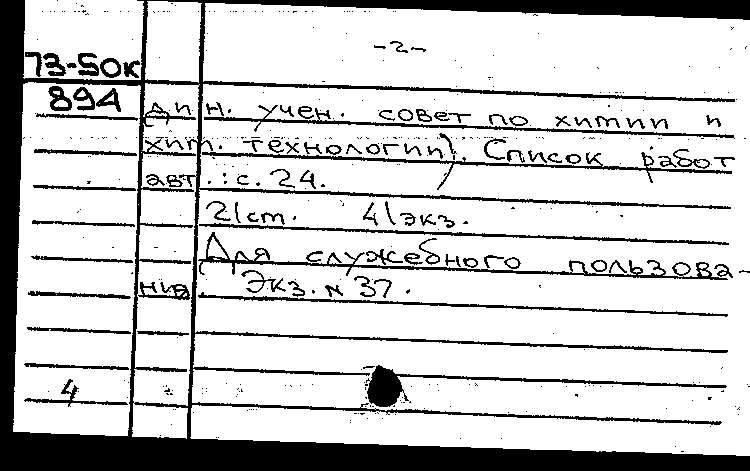 -2-
73-50к
894
дин. учен. совет по химии и
хим. технологии). Список работ
авт.: с. 24.
21 ст. 41 экз.
Для служебного пользова-
ния. Экз. № 37.
4